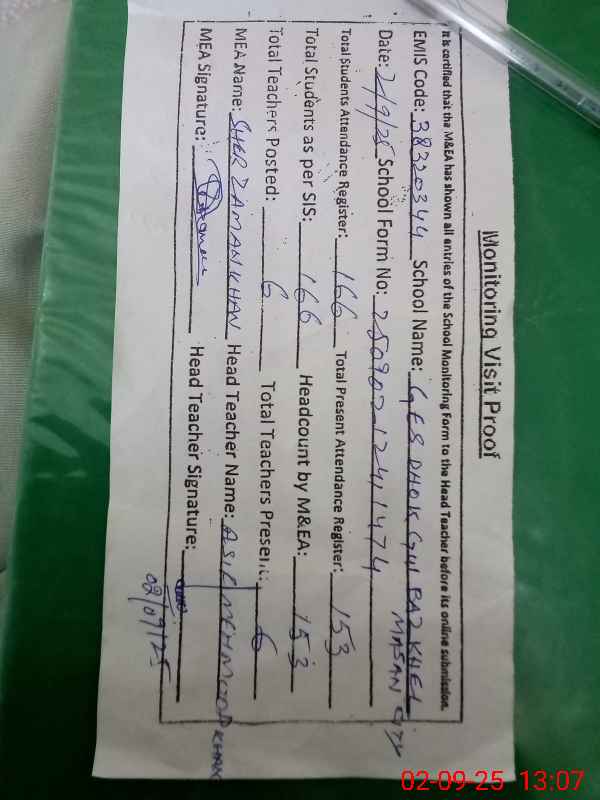 Monitoring Visit Proof
It is certified that the M&EA has shown all entries of the School Monitoring Form to the Head Teacher before its online submission.
EMIS Code: 38320344 School Name: GES DHOK GUL BAZ KHEL
MASAN CITY
Date: 2/9/25 School Form No: 25090212411474
Total Students Attendance Register: 166 Total Present Attendance Register: 153
Total Students as per SIS: 166 Headcount by M&EA: 153
Total Teachers Posted: 6 Total Teachers Present: 6
MEA Name: SHER ZAMAN KHAN Head Teacher Name: ASIF MEHMOOD KHAN
MEA Signature: Head Teacher Signature:
02/09/25
02-09-25 13:07